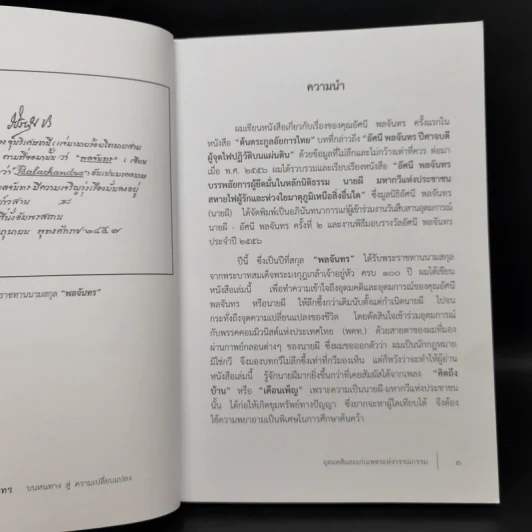 ๆนาม ว่า "พลจันทร" เขียน
ว่า "Balachandra"
ราชทานนามสกุล "พลจันทร"
ทร บนหนทาง สู่ ความเปลี่ยนแปลง
ความนำ
ผมเขียนหนังสือเกี่ยวกับเรื่องของคุณอัศนี พลจันทร ครั้งแรกใน
หนังสือ "ต้นตระกูลอภัยการไทย" บทที่กล่าวถึง "อัศนี พลจันทร ปีศาจบดี
ผู้จุดไฟปฏิวัติบนแผ่นดิน" ด้วยข้อมูลที่ไม่ลึกและไม่กว้างเท่าที่ควร ต่อมา
เมื่อ พ.ศ. ๒๕๕๖ ผมได้รวบรวมและเรียบเรียงหนังสือ "อัศนี พลจันทร
บรรพอัยการผู้ยึดมั่นในหลักนิติธรรม นายผี มหากวีแห่งประชาชน
สหายไฟผู้รักและห่วงใยมาตุภูมิเหนือสิ่งอื่นใด" ซึ่งมูลนิธิอัศนี พลจันทร
(นายผี) ได้จัดพิมพ์เป็นอภินันทนาการแก่ผู้เข้าร่วมงานวันสืบสานอุดมการณ์
นายผี - อัศนี พลจันทร ครั้งที่ ๒ และงานพิธีมอบรางวัลอัศนี พลจันทร
ประจำปี ๒๕๕๖
ปีนี้ ซึ่งเป็นปีที่สกุล "พลจันทร" ได้รับพระราชทานนามสกุล
จากพระบาทสมเด็จพระมงกุฎเกล้าเจ้าอยู่หัว ครบ ๑๐๐ ปี ผมได้เขียน
หนังสือเล่มนี้ เพื่อทำความเข้าใจถึงอุดมคติและอุดมการณ์ของคุณอัศนี
พลจันทร หรือนายผี ให้ลึกซึ้งกว่าเดิมนับตั้งแต่กำเนิดนายผี ไปจน
กระทั่งถึงจุดความเปลี่ยนแปลงของชีวิต โดยตัดสินใจเข้าร่วมอุดมการณ์
กับพรรคคอมมิวนิสต์แห่งประเทศไทย (พคท.) ด้วยสายตาของผมที่มอง
ผ่านกาพย์กลอนต่างๆ ของนายผี ซึ่งผมขอออกตัวว่า ผมเป็นนักกฎหมาย
มิใช่กวี จึงมองบทกวีไม่ลึกซึ้งเท่าที่กวีมองเห็น แต่ก็หวังว่าจะทำให้ผู้อ่าน
หนังสือเล่มนี้ รู้จักนายผีมากยิ่งขึ้นกว่าที่เคยสัมผัสได้จากเพลง "คิดถึง
บ้าน" หรือ "เดือนเพ็ญ" เพราะความเป็นนายผี-มหากวีแห่งประชาชน
นั้น ได้ก่อให้เกิดขุมทรัพย์ทางปัญญา ซึ่งยากจะหาผู้ใดเทียบได้ จึงต้อง
ใช้ความพยายามเป็นพิเศษในการศึกษาค้นคว้า